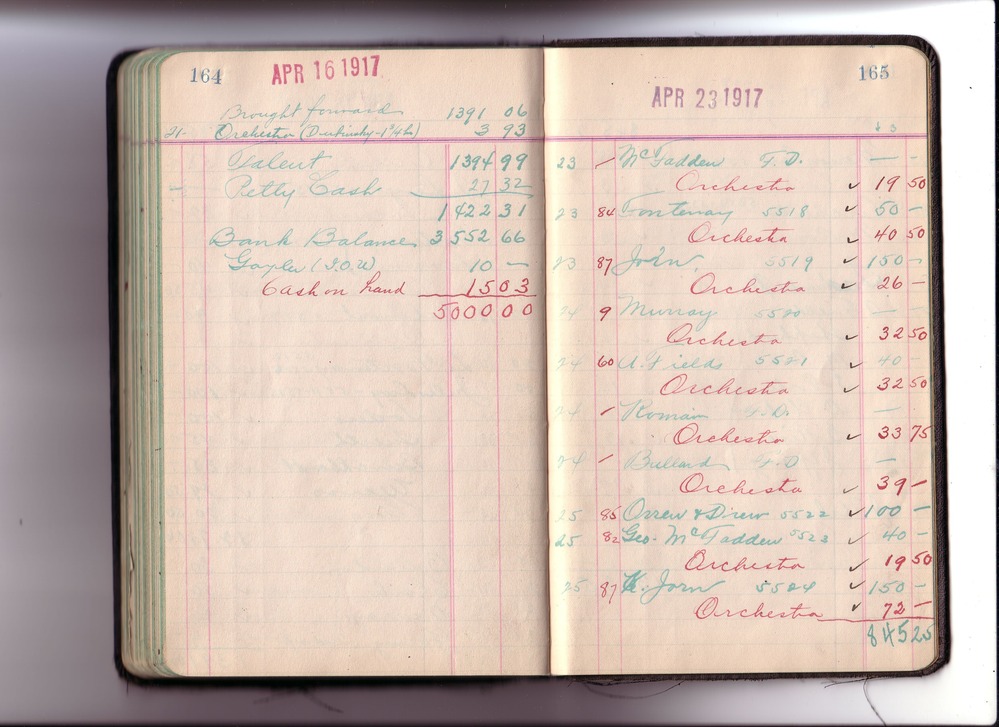 164
APR 16 1917
Brought forward 1391 06
21- Orchestra (Dubinsky - 1 3/4 h) 3 93
Talent 1394 99
Petty Cash 27 32
1422 31
Bank Balance 3552 66
(I.O.U) 10 —
Cash on hand 15 03
5000 00
165
APR 23 1917
23 / McFadden T.D. — -
Orchestra ✓ 19 50
23 84 Fontenay 5518 ✓ 50 -
Orchestra ✓ 40 50
23 87 Jörn, 5519 ✓ 150 -
Orchestra ✓ 26 -
24 9 Murray 5520 —
Orchestra ✓ 32 50
24 60 A. Fields 5521 ✓ 40 -
Orchestra ✓ 32 50
24 / Roman T.D. —
Orchestra ✓ 33 75
24 / Bullard T.D —
Orchestra ✓ 39 -
25 85 & Drew 5522 ✓ 100 -
25 82 Geo. McFadden 5523 ✓ 40 -
Orchestra ✓ 19 50
25 87 K. Jörn 5524 ✓ 150 -
Orchestra ✓ 72 -
845 25